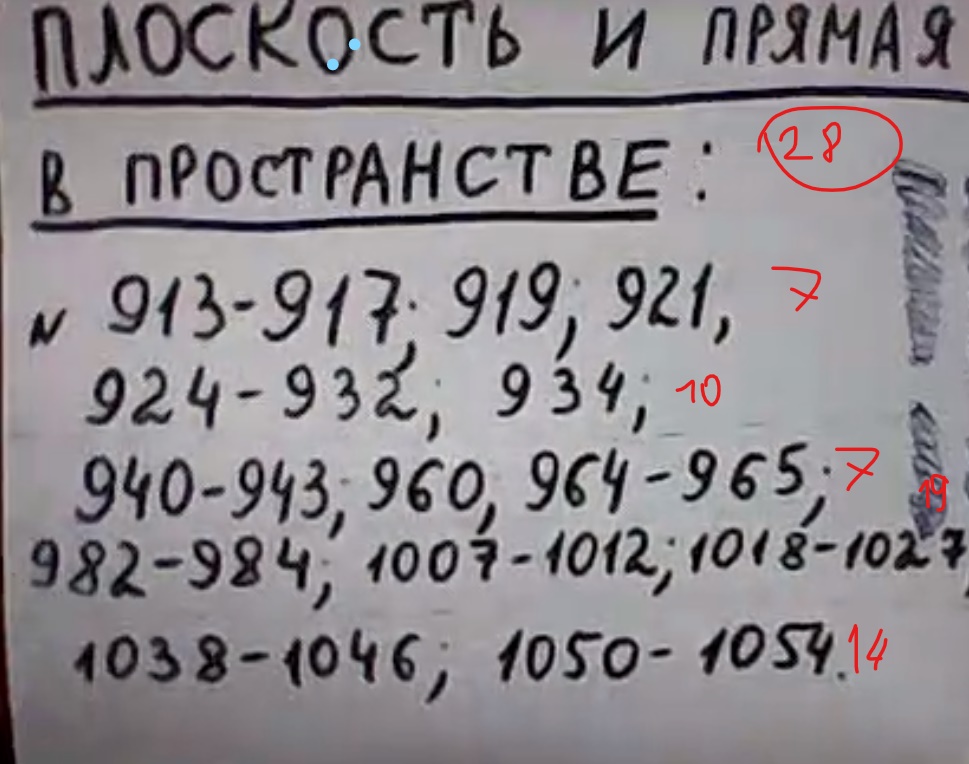 ПЛОСКОСТЬ И ПРЯМАЯ
В ПРОСТРАНСТВЕ: 28
N 913-917; 919; 921, 7
924-932; 934; 10
940-943; 960, 964-965; 7
982-984; 1007-1012; 1018-1027, 19
1038-1046; 1050-1054. 14